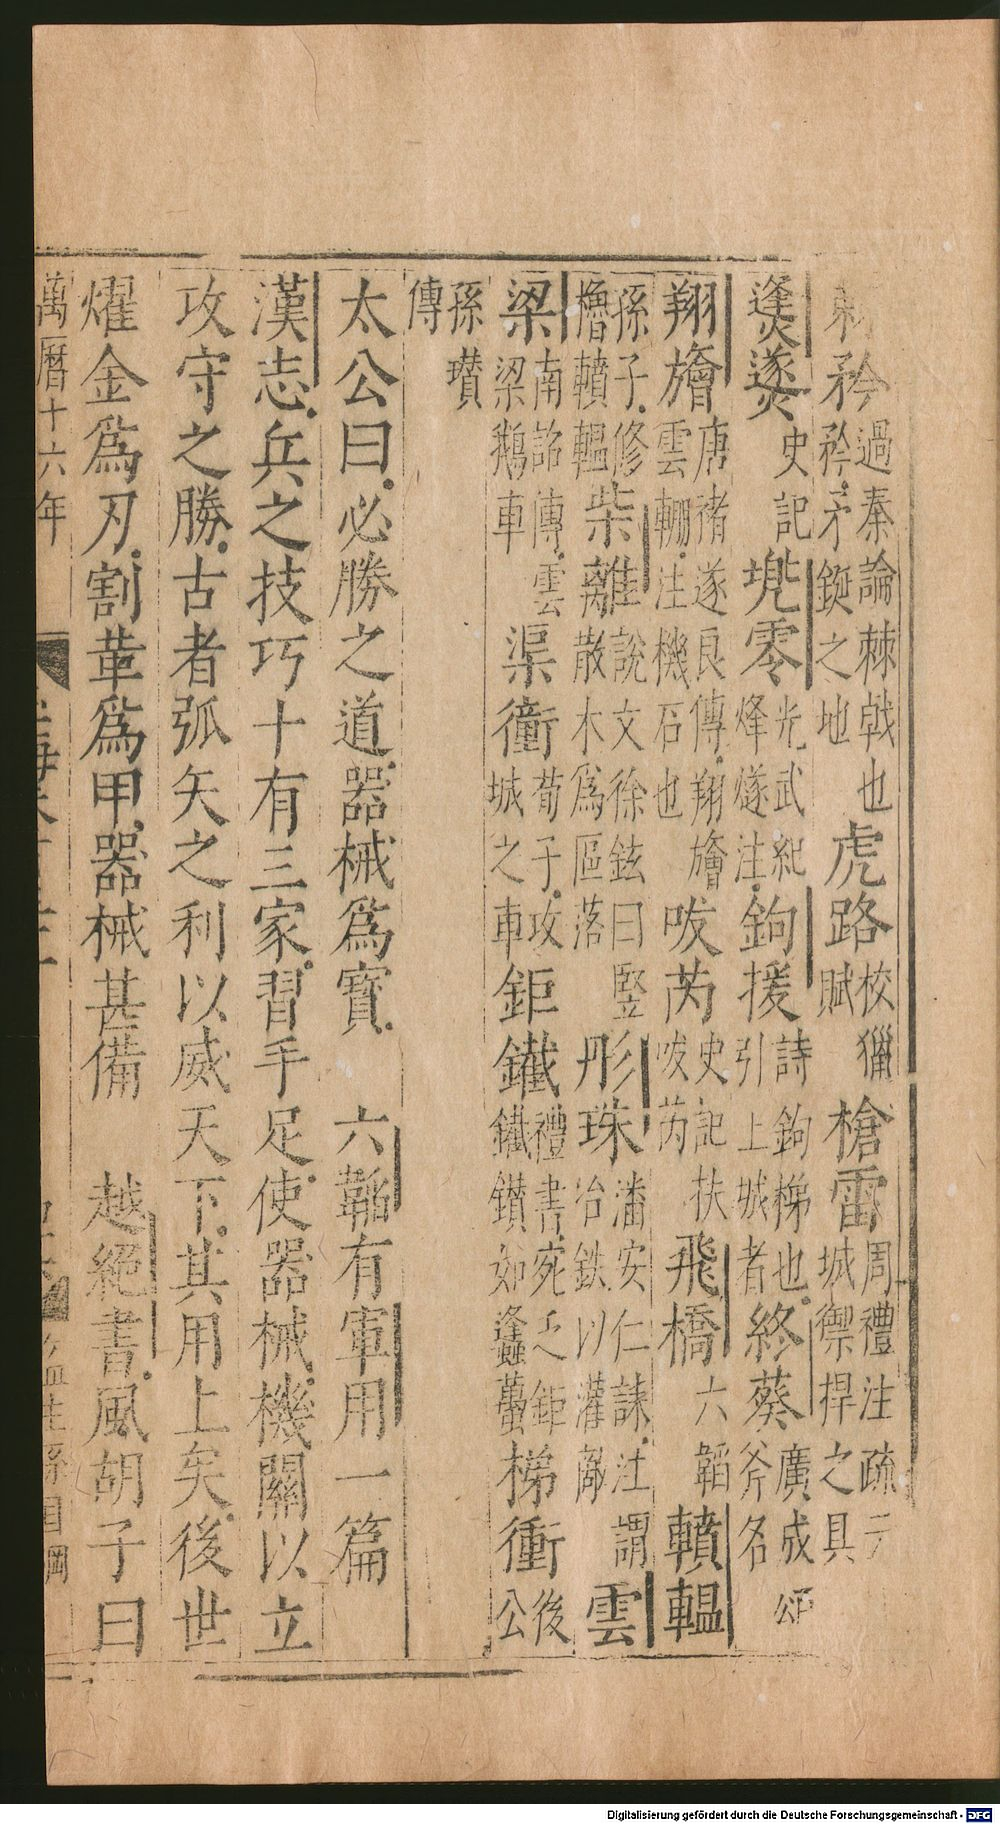 矜過秦論棘戟也矜矛鋋之地虎路校獵賦槍雷周禮注疏元城禦捍之具
㷭㸂史記兠零光武紀烽燧注鉤援詩鉤梯也引上城者終葵廣成頌斧名
翔旝唐褚遂良傳翔旝雲輣注機石也㕹芮史記㕹芮扶飛橋六韜轒輼
孫子修櫓轒轀柴離說文徐鉉曰豎散木為區落彤珠潘安仁誄注謂冶鉄以灌敵雲
梁南詔傳雲梁鵝車渠衝荀子攻城之車鉅鐵禮書宛之鉅鐵鑽如蠭蠆梯衝後公
孫瓚傳
太公曰必勝之道器械爲寶　六韜有軍用一篇
漢志兵之技巧十有三家習手足使器械機關以立
攻守之勝古者弧矢之利以威天下其用上矣後世
燿金爲刃割革爲甲器械甚備　越絕書風胡子曰
萬曆十六年
Digitalisierung gefördert durch die Deutsche Forschungsgemeinschaft - DFG